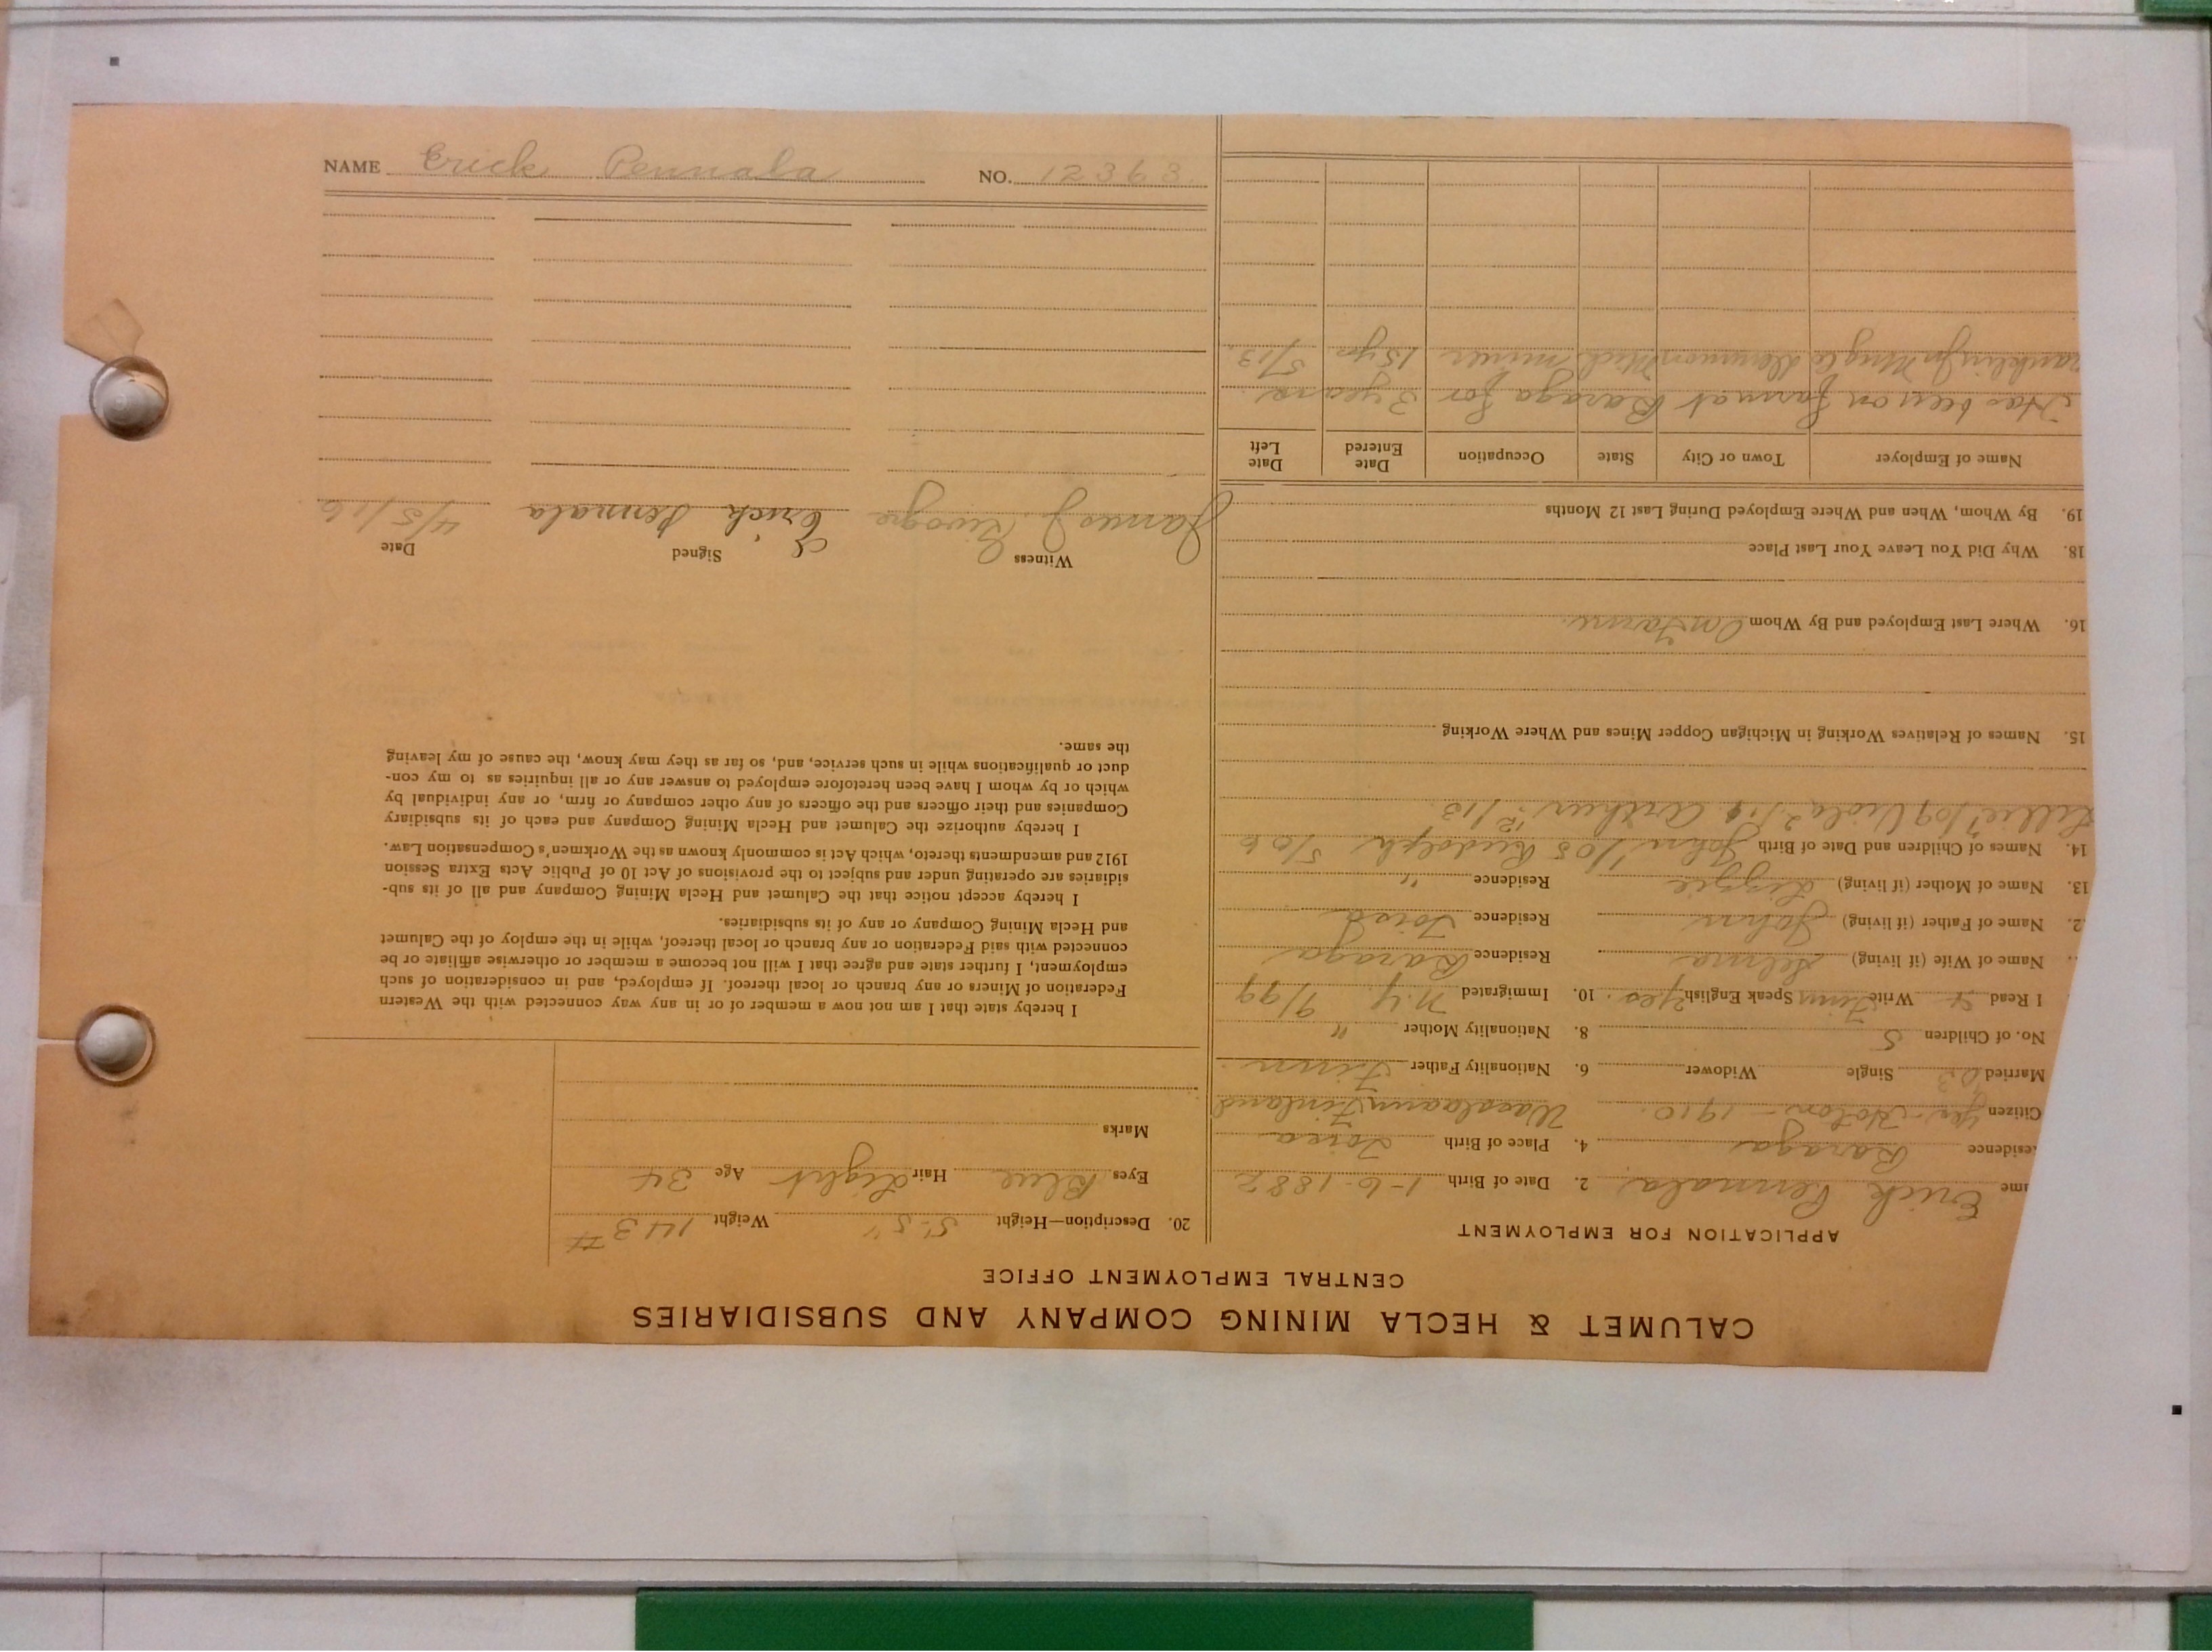 NAME Erick Pennala NO. 12363
CALUMET & HECLA MINING COMPANY AND SUBSIDIARIES
CENTRAL EMPLOYMENT OFFICE
APPLICATION FOR EMPLOYMENT
ame Erick Pennala 2. Date of Birth 1-6-1882
esidence Baraga 4. Place of Birth
Citizen Yes - Hoton - 1910. Finland
Married 03 Single Widower 6. Nationality Father Finn
No. of Children 5 8. Nationality Mother "
I Read & Write Finn Speak English yes. 10. Immigrated N.Y. 9/99
Name of Wife (if living) Selma Residence Baraga
2. Name of Father (if living) John Residence
13. Name of Mother (if living) Lizzie Residence "
14. Names of Children and Date of Birth John 1/05 Rudolph 5/06
Lillie 7/09 Viola Arthur 12/13
15. Names of Relatives Working in Michigan Copper Mines and Where Working
16. Where Last Employed and By Whom On Farm.
18. Why Did You Leave Your Last Place
19. By Whom, When and Where Employed During Last 12 Months
Name of Employer Town or City State Occupation Date Entered Date Left
Has been on farm at Baraga for 3 years
ranklin Jr Mng Co Mich miner 15 yrs 5/13.
20. Description—Height 5'-5" Weight 143 #
Eyes Blue Hair Light Age 34
Marks
I hereby state that I am not now a member of or in any way connected with the Western
Federation of Miners or any branch or local thereof. If employed, and in consideration of such
employment, I further state and agree that I will not become a member or otherwise affiliate or be
connected with said Federation or any branch or local thereof, while in the employ of the Calumet
and Hecla Mining Company or any of its subsidiaries.
I hereby accept notice that the Calumet and Hecla Mining Company and all of its sub-
sidiaries are operating under and subject to the provisions of Act 10 of Public Acts Extra Session
1912 and amendments thereto, which Act is commonly known as the Workmen's Compensation Law.
I hereby authorize the Calumet and Hecla Mining Company and each of its subsidiary
Companies and their officers and the officers of any other company or firm, or any individual by
which or by whom I have been heretofore employed to answer any or all inquiries as to my con-
duct or qualifications while in such service, and, so far as they may know, the cause of my leaving
the same.
Witness Signed Date
James J. Erick Pennala 4/5/16